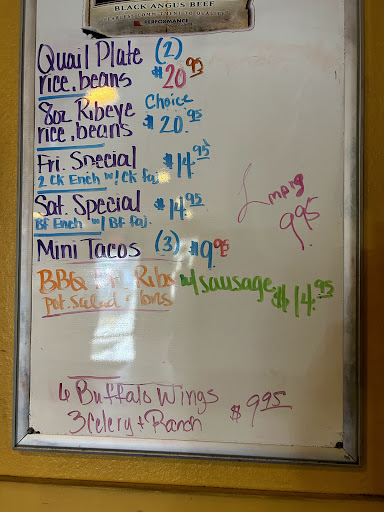 BLACK ANGUS BEEF
PERFORMANCE
Quail Plate (2)
rice, beans $20.95
8oz Ribeye Choice
rice, beans $20.95
Fri. Special $14.95
2 Ck Ench w/ Ck faj.
Sat. Special $14.95
BF Ench w/ BF faj.
Mini Tacos (3) $9.95
BBQ Ribs w/ sausage $14.95
pot. salad
9.95
6 Buffalo Wings
3 celery + Ranch $9.95